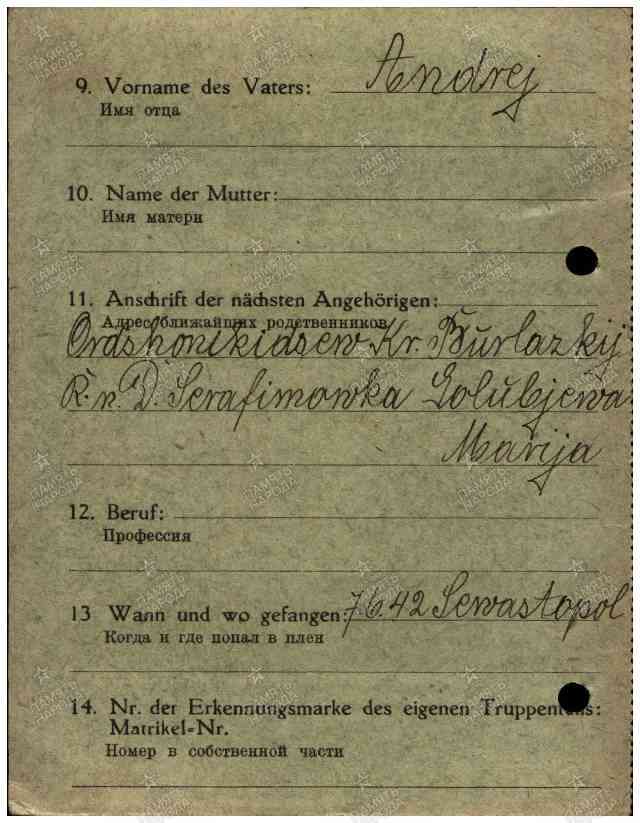 9. Vorname des Vaters: Andrej
Имя отца
10. Name der Mutter:
Имя матери
11. Anschrift der nächsten Angehörigen:
Адрес ближайших родственников
Ordshonikidsew Kr. Burlazkij
R. n. D. Serafimowka Golubjewa
Marija
12. Beruf:
Профессия
13 Wann und wo gefangen: 7.6.42 Sewastopol
Когда и где попал в плен
14. Nr. der Erkennungsmarke des eigenen
Matrikel-Nr.
Номер в собственной части
ПАМЯТЬ НАРОДА